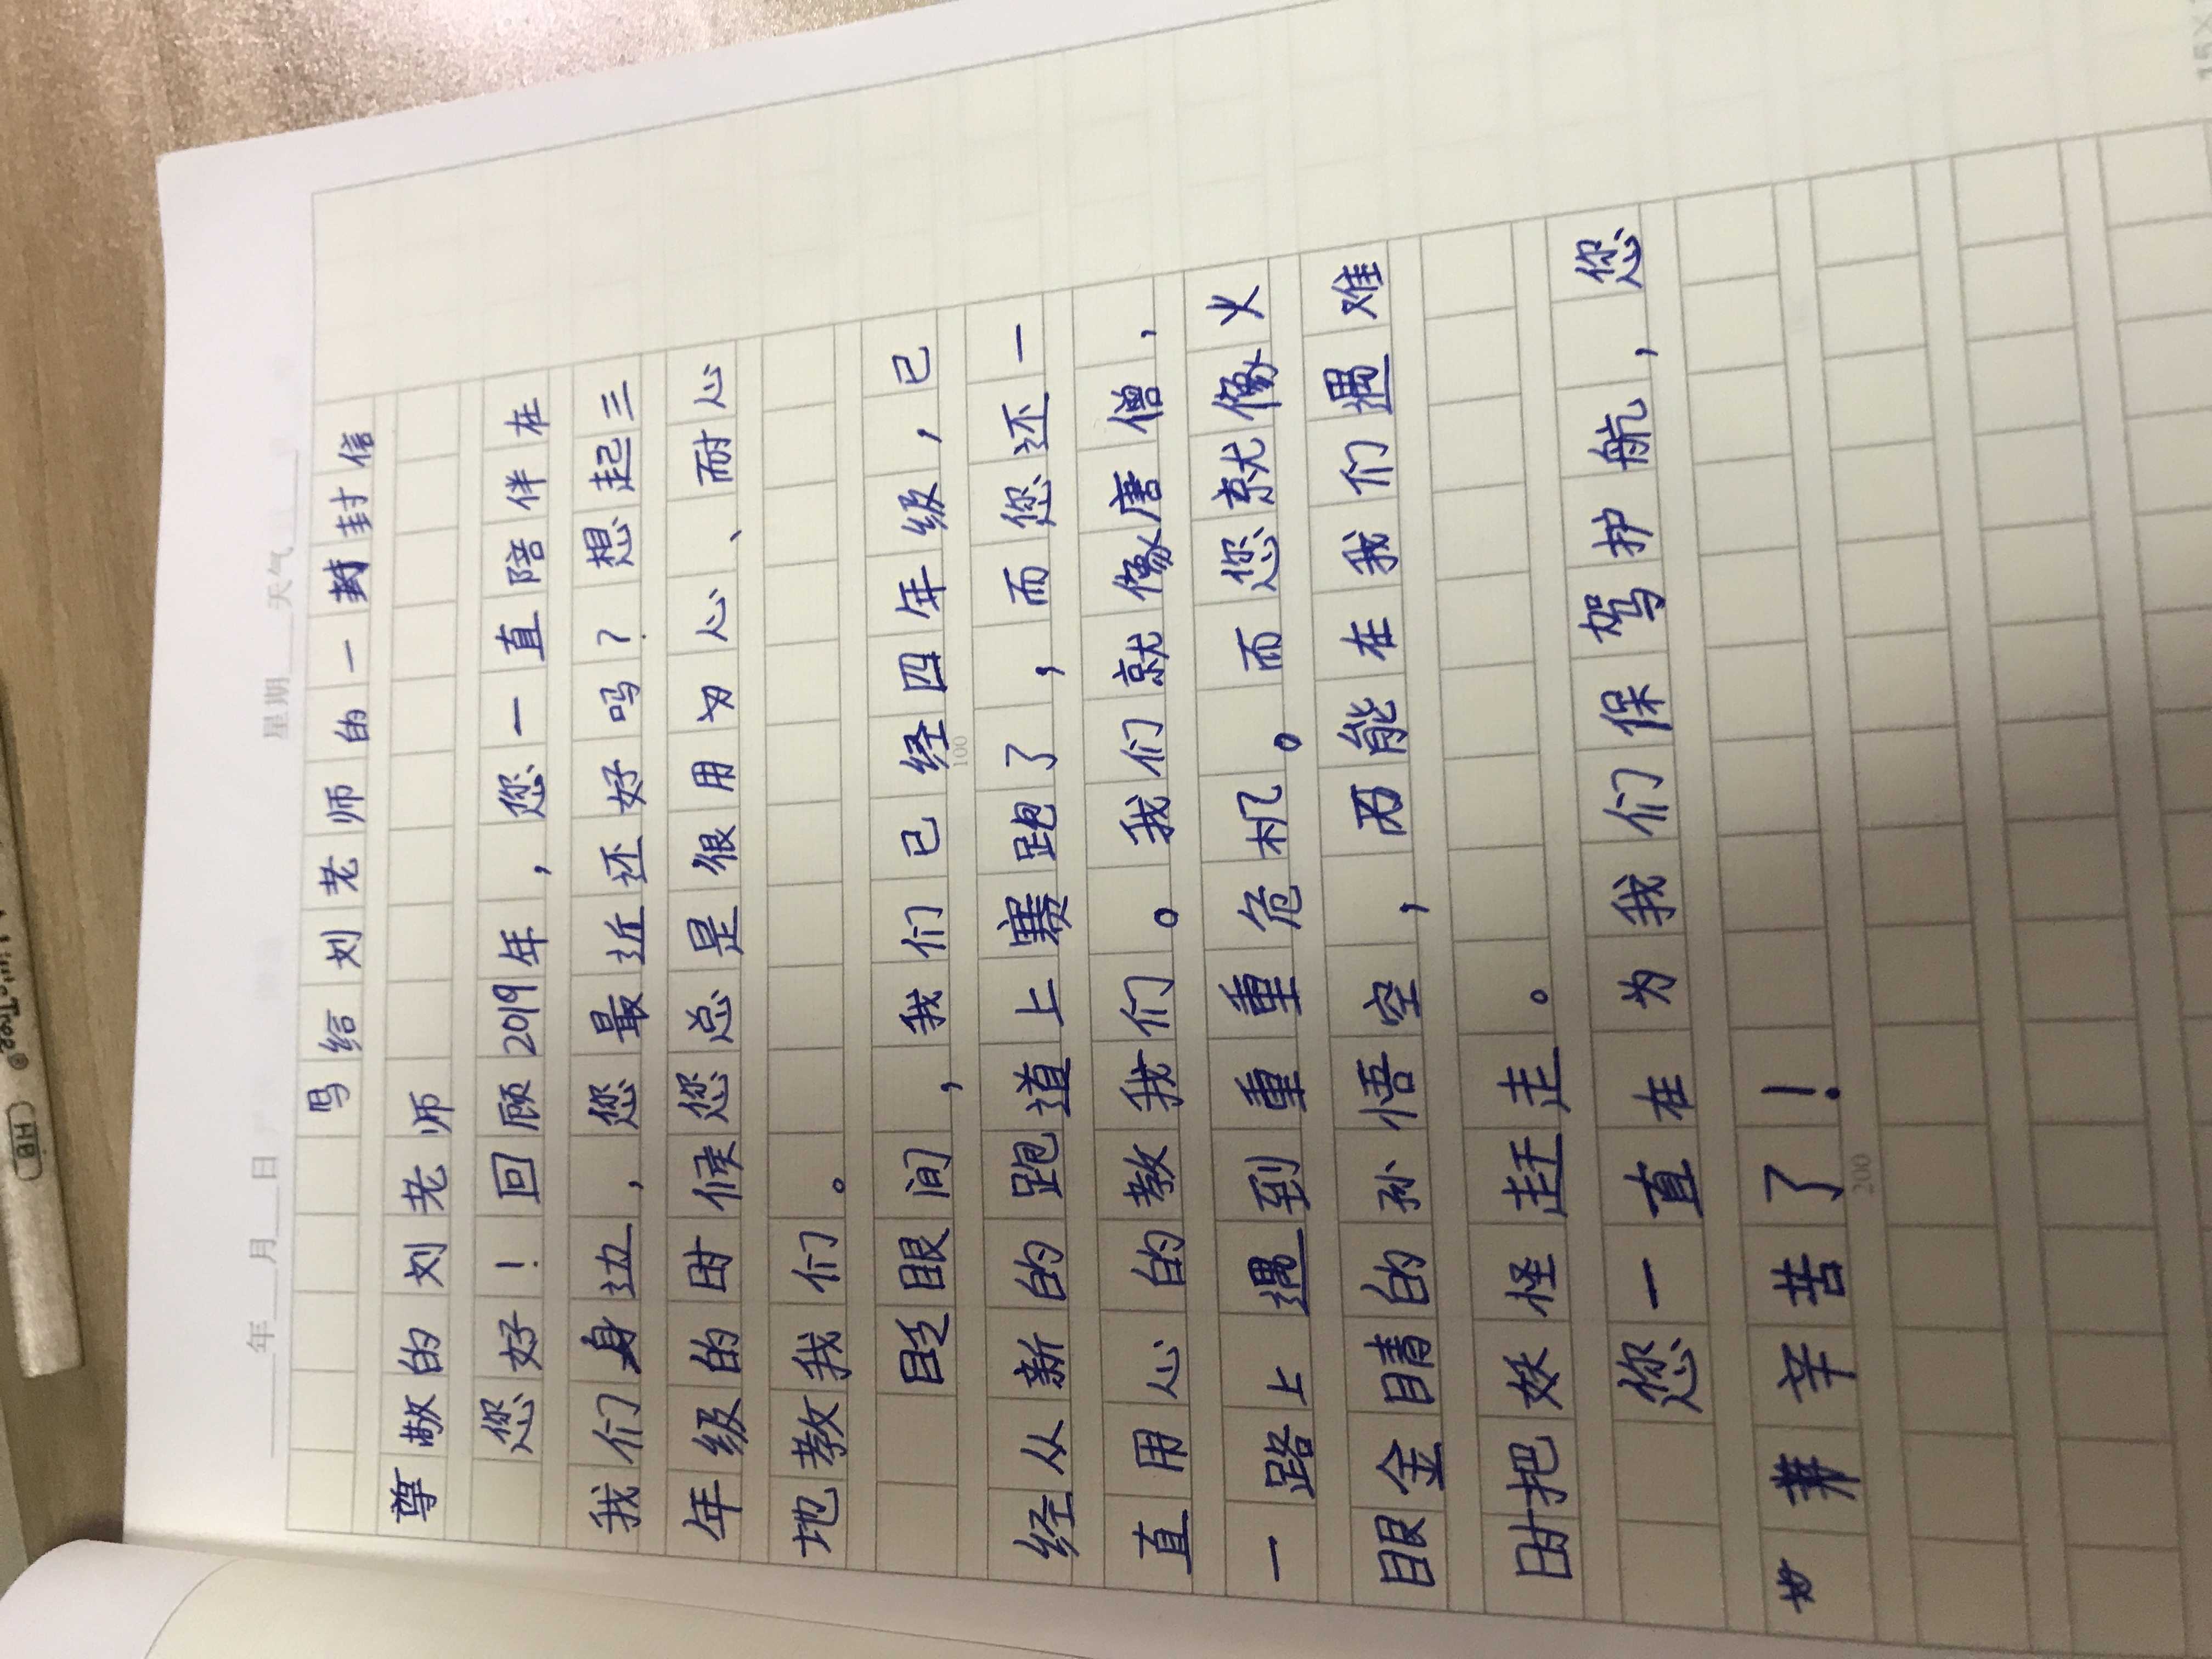 年 月 日 星期 天气
写给刘老师的一封信
尊敬的刘老师
您好！回顾2019年，您一直陪伴在
我们身边，您最近还好吗？想起三
年级的时候您总是很用心、耐心
地教我们。
眨眼间，我们已经四年级，已
100
经从新的跑道上赛跑了，而您还一
直用心的教我们。我们就像唐僧，
一路上遇到重重危机。而您就像火
眼金睛的孙悟空，而能在我们遇难
时把妖怪赶走。
您一直在为我们保驾护航，您
辛苦了！
200
HB